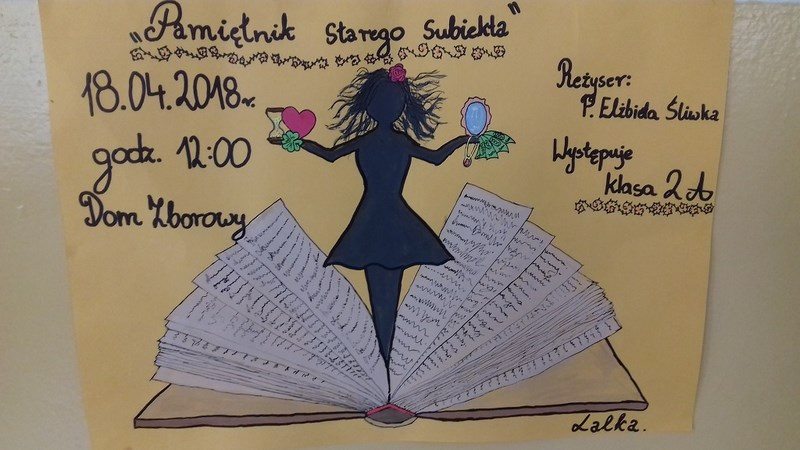 „Pamiętnik starego subiekta”
18.04.2018r.
godz. 12:00
Dom Zborowy
Reżyser:
P. Elżbieta Śliwka
Występuje
klasa 2A
Lalka.